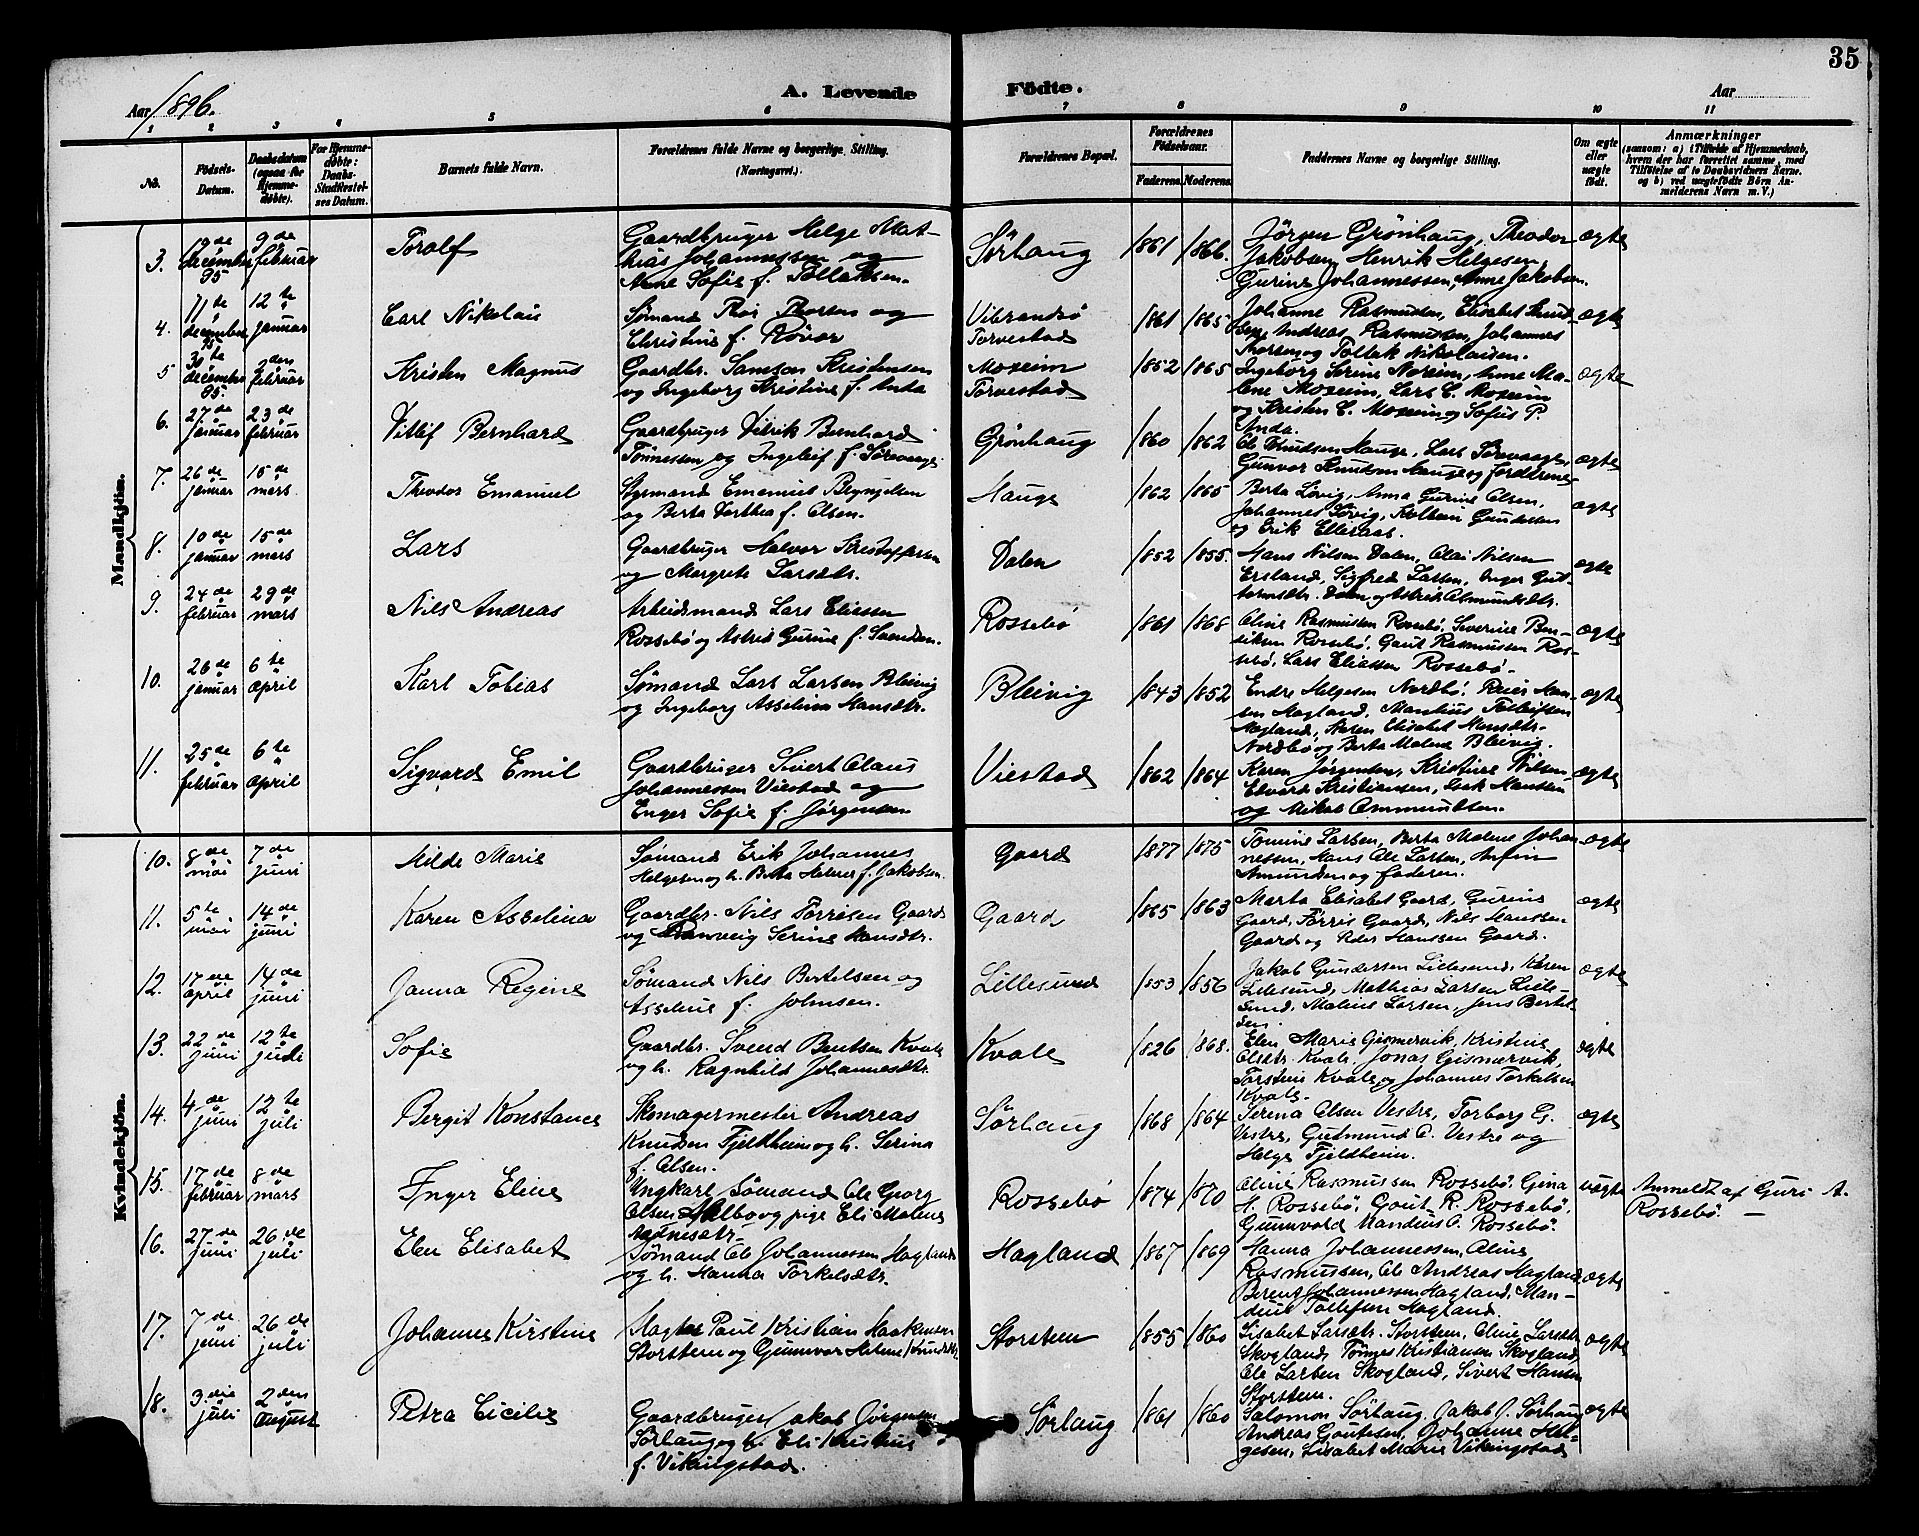 35
Aar 1896.
A. Levende Födte.
Aar
1 2 3 4 5 6 7 8 9 10 11
No.
Födsels-Datum.
Daabsdatum (ogsaa for Hjemme-döbte).
For Hjemme-döbte: Daabs-Stadfæstel-ses Datum.
Barnets fulde Navn.
Forældrenes fulde Navne og borgerlige Stilling.
Forældrenes Bopæl.
Forældrenes Födselsaar.
Faderens. Moderens.
Faddernes Navne og borgerlige Stilling.
Om ægte eller uægte födt.
Anmærkninger
(saasom: a) i Tilfælde af Hjemmedaab, hvem der har forrettet samme, med Tilföielse af to Daabsvidners Navne. og b) ved uægtefödte Börn An-melderens Navn m. V.)
Mandkjön.
3. 19de december 95 9de februar Toralf Gaardbruger Helge Mat-
hias Johannessen og
Anne Sofie f. Tollaksen. Sørhaug 1861 1866. Jørgen Grønhaug, Theodor
Jakobsen, Henrik Helgesen,
Gurine Johannessen, Anne Jakobsen. ægte
4. 11te december 95 12te januar Carl Nikolai Sømand Roi Thorsen og
Christine f. Røvær Vibrandsø
Torvestad 1861 1865 Johanne Rasmussen, Elisabet
Andreas Rasmussen, Johannes
Thorsen og Tollak Nikolaisen. ægte
5 december 95. februar Kristen Magnus Gaardbr. Samson Kristensen
og Ingeborg Kristine f. Anda Moxeim
Torvestad 1852 1865 Ingeborg Serine Noreim, Anne Ma-
lene Moxeim, Lars C. Moxeim
og Kristen C. Moxeim og Sofus P.
Anda. ægte
6. 27de januar 23de februar Ditlef Bernhard Gaardbruger Didrik Bernhard
Tønnessen og Ingeleif f. Grønhaug 1860 1862 Ole Knudsen Hauge, Lars
Gunvor Knudsen Hauge og forældrene ægte
7. 26de januar 15de mars Theodor Emanuel Styrmand Emanuel Bryngelsen
og Berta Dorthea f. Olsen. Hauge 1862 1865 Berta Løvig, Anna Gurine Olsen,
Johannes Løvig, Kolbein Gundersen
og Erik Elleraas. ægte
8. 10de januar 15de mars Lars Gaardbruger Halvor Kristoffersen
og Margrete Larsdtr. Dalen 1852 1855. Hans Nilsen Dalen, Olai Nilsen
Ersland, Sigfred Larsen, Inger Gut-
tormsdtr. Dalen og Astrid Asmundsdtr. ægte
9. 24de februar 29de mars Nils Andreas Arbeidsmand Lars Eliassen
Rossebø og Astrid Gurine f. Svendsen. Rossebø 1861 1868 Oline Rasmussen Rossebø, Severine Ben-
diksen Rossebø, Gaut Rasmussen Ros-
sebø, Lars Eliassen Rossebø. ægte
10. 26de januar 6te april Karl Tobias Sømand Lars Larsen Bleivig
og Ingeborg Asselina Hansdtr. Bleivig 1843 1852 Endre Helgesen Nordbø, Han-
sen Hagland, Mandius Tollefsen
Hagland, Karen Elisabet Hansdtr.
Nordbø og Berta Malene Bleivig. ægte
11. 25de februar 6te april Sigvard Emil Gaardbruger Sivert Olaus
Johannessen Viestad og
Enger Sofie f. Jørgensen Viestad 1862 1864 Karen Jørgensen, Kristine Nilsen
Edvard Kristiansen, Isak Hanssen
og Mikal Ommundsen. ægte
Kvindekjön.
10. 8de mai 7de juni Milde Marie Sømand Erik Johannes
Helgesen og h. Berta Helene f. Jakobsen. Gaard 1877 1875 Tomine Larsen, Berta Malene Johan
nessen, Hans Ole Larsen, Arfin
Amundsen og faderen. ægte
11. 5te mai 14de juni Karen Asselina Gaardbr. Nils Torrisen Gaard
og Ranveig Serine Hansdtr. Gaard 1865 1863 Marta Elisabet Gaard, Gurine
Gaard, Tørris Gaard, Nils Hanssen
Gaard og Peder Hanssen Gaard. ægte
12. 17de april 14de juni Janna Regine Sømand Nils Bertelsen og
Asseline f. Johnsen. Lillesund 1853 1856 Jakob Gundersen Lillesund, Karen
Lillesund, Mathias Larsen Lille-
sund, Maline Larsen, Jens Bertel-
sen. ægte
13. 22de juni 12te juli Sofie Gaardbr. Svend Bentsen Kvale
og h. Ragnhild Johannesdtr. Kvale 1826 1868. Elen Marie Gismervik, Kristine
Olsdtr. Kvale, Jonas Gismervik,
Torstein Kvale og Johannes Torkelsen
Kvale. ægte
14. 4de juni 12te juli Bergit Konstance Skomagermester Andreas
Knudsen Fjeldheim og h. Serina
f. Olsen. Sørhaug 1868 1864 Serena Olsen Vestre, Torborg G.
Vestre, Gudmund O. Vestre og
Helge Fjeldheim. ægte
15. 17de februar 8de mars Inger Eline Ungkarl Sømand Ole Georg
Olsen og pige Eli Malene
Rossebø 1874 1870 Oline Rasmussen Rossebø, Gina
H. Rossebø, Gaut R. Rossebø,
Gunvald Mandius O. Rossebø. uægte Anmeldt af Guri A.
Rossebø. —
16. 27de juni 26de juli Elen Elisabet Sømand Ole Johannessen Hagland
og h. Hanna Torkelsdtr. Hagland 1867 1869 Hanna Johannessen, Oline
Rasmussen, Ole Andreas Hagland,
Berent Johannessen Hagland, Man-
dius Tollefsen Hagland. ægte
17. 7de juni 26de juli Johanne Kirstine Paul Kristian Haakonsen
Storstein og Gunvor Helene Storstein 1855 1860 Lisabet Larsdtr. Storstein, Oline Larsdtr
Skogland, Tønnes Kristiansen Skogland,
Ole Larsen Skogland, Sivert Hansen
Storstein. ægte
18. 3die juli 2den august Petra Cicilie Gaardbruger Jakob Jørgensen
Sørhaug og h. Eli Kristine
f. Vikingstad. Sørhaug 1861 1860 Salomon Sørhaug, Jakob J. Sørhaug
Andreas Gautesen, Johanne Hel-
gesen, Lisabet Marie Vikingstad ægte